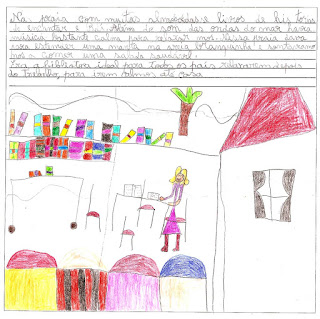 Na praia com muitas almofadas e livros de histórias
de encantar e rir. Além do som das ondas do mar havia
música bastante calma para relaxar-mos. Nessa praia
estender uma manta na areia branquinha e sentavamo-
nos a comer uma salada saudável!
Era a biblioteca ideal para todos os pais relaxarem depois
do trabalho, para irem calmos até casa.